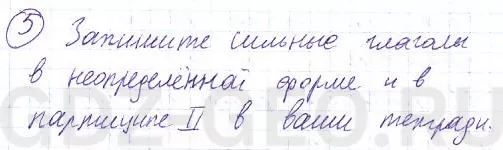 ⑤ Запишите сильные глаголы
в неопределённой форме и в
партиципе II в ваши тетради.